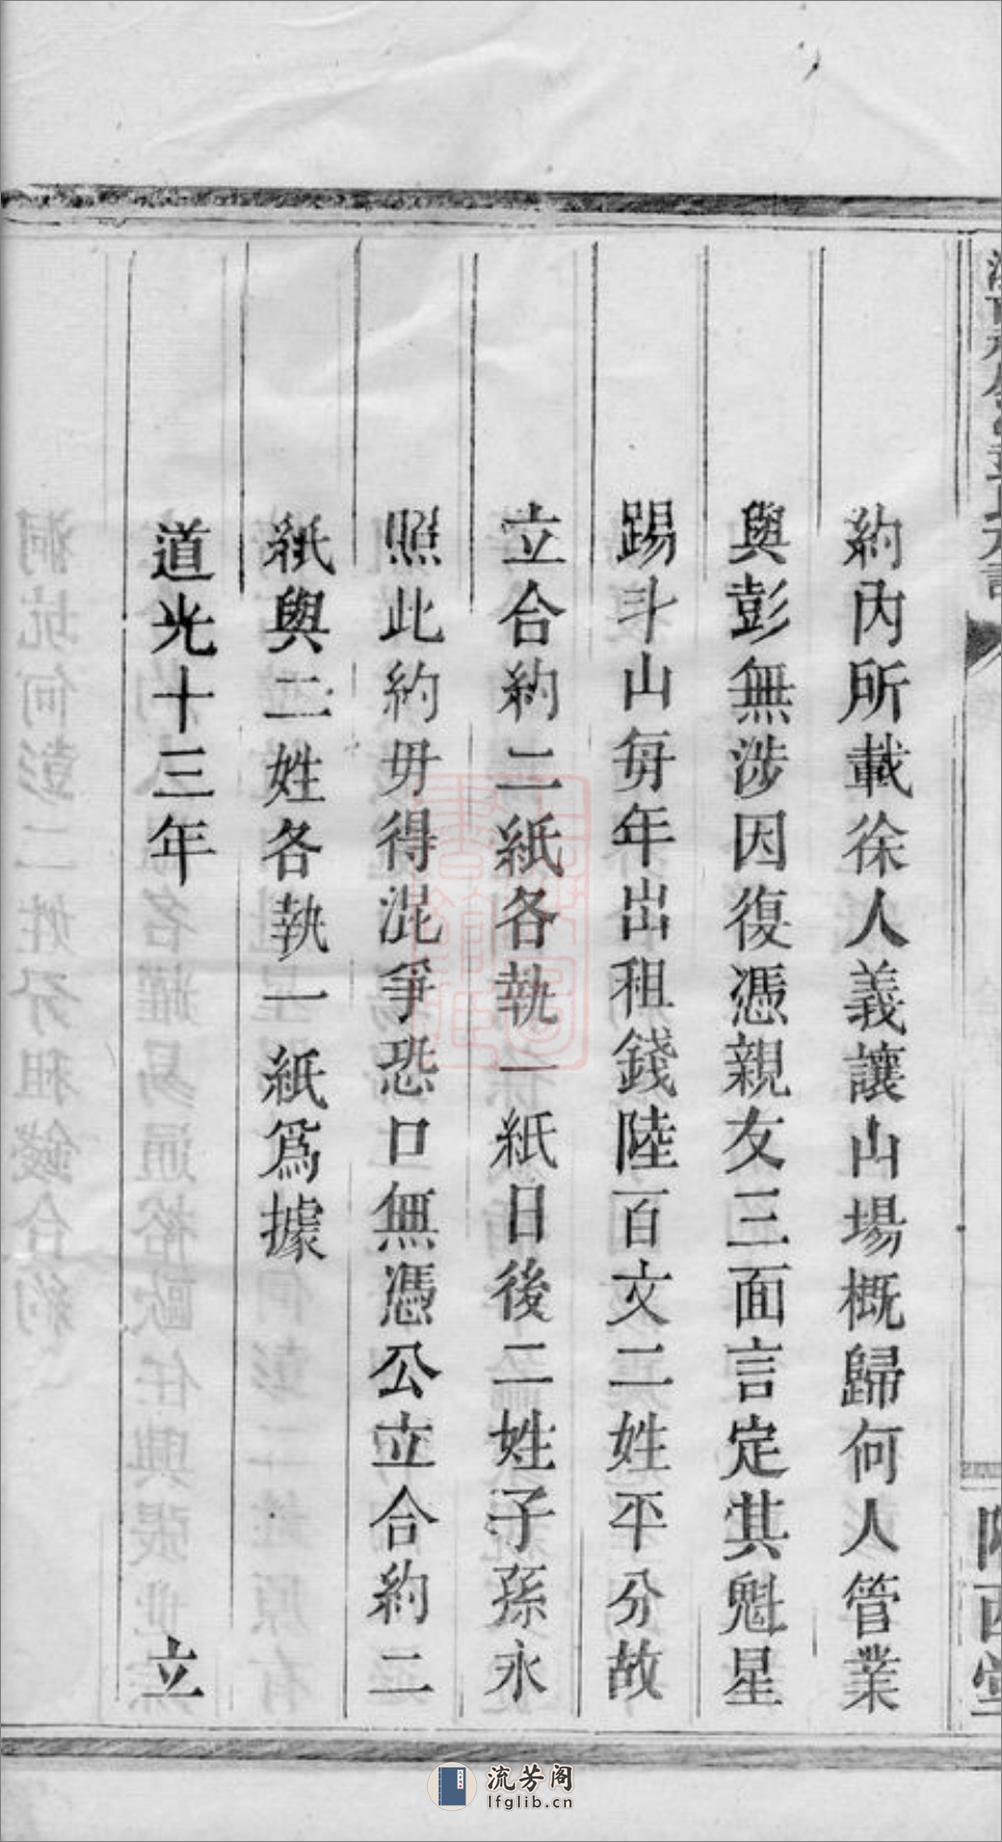 約內所載徐人義讓山場概歸何人管業
與彭無涉因復憑親友三面言定其魁星
踢斗山每年出租錢陸百文二姓平分故
立合約二紙各執一紙日後二姓子孫永
照此約毋得混爭恐口無憑公立合約二
紙與二姓各執一紙爲據
道光十三年 立
流芳阁
lfglib.cn